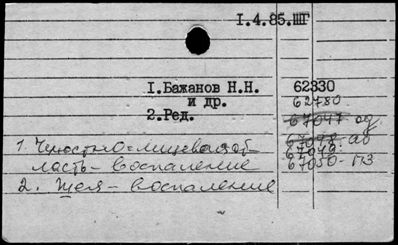 I.4.85.ШГ
I.Бажанов Н.Н. 62330
и др. 62780
2.Ред. 67047 ад
1. Челюстно-лицевая об 67048 аб
ласть - воспаление 67049-
67050-ПЗ
2. Шея - воспаление